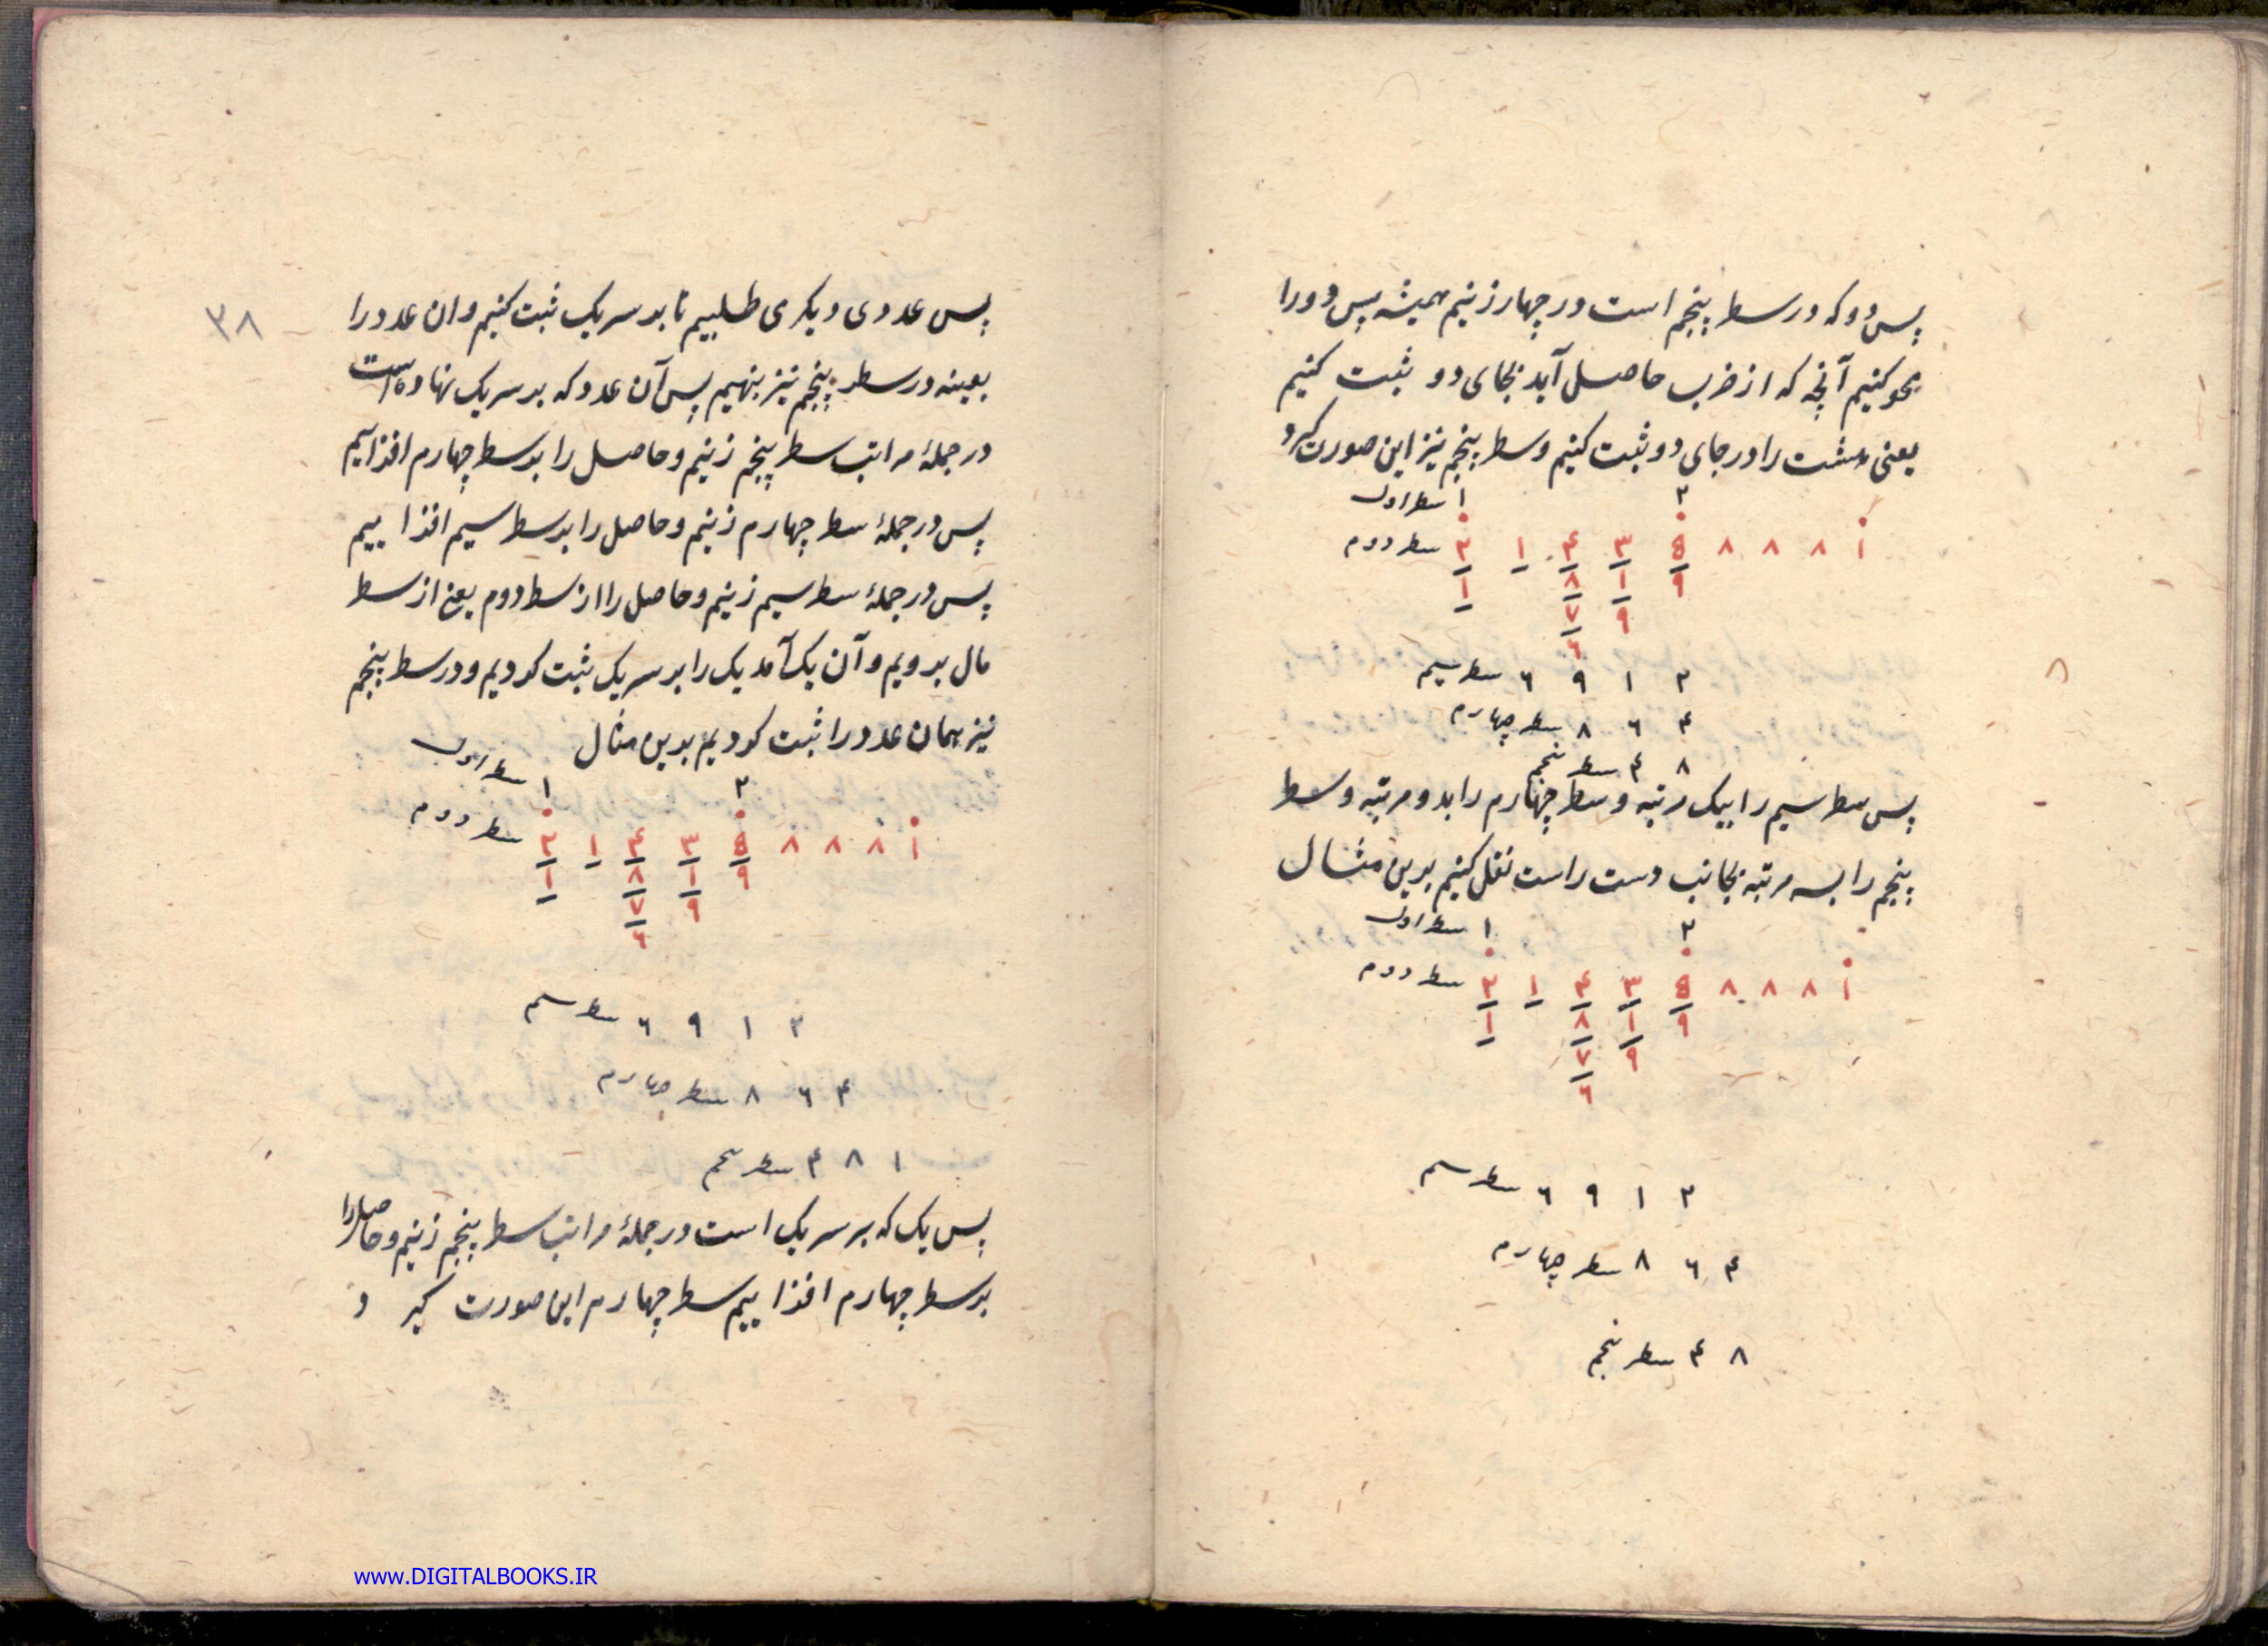 پس دو که در سطر پنجم است در چهار زنیم همیشه پس دو را
محو کنیم آنچه که از ضرب حاصل آید بجای دو ثبت کنیم
یعنی هشت را در جای دو ثبت کنیم و سطر پنجم نیز این صورت گیرد
۲ ۱ سطر اول
۱ ۸ ۸ ۸ ۵ ۳ ۴ ۱ ۲ سطر دوم
۹ ۱ ۸ ۱
۹ ۷
۶
۲ ۱ ۹ ۶ سطر سیم
۴ ۶ ۸ سطر چهارم
۸ ۴ سطر پنجم
پس سطر سیم را بیک مرتبه و سطر چهارم را بدو مرتبه و سطر
پنجم را بسه مرتبه بجانب دست راست نقل کنیم برین مثال
۲ ۱ سطر اول
۱ ۸ ۸ ۸ ۵ ۳ ۴ ۱ ۲ سطر دوم
۹ ۱ ۸ ۱
۹ ۷
۶
۲ ۱ ۹ ۶ سطر سیم
۴ ۶ ۸ سطر چهارم
۸ ۴ سطر پنجم
۳۸
پس عددی دیگری طلبیم تا بر سر یک ثبت کنیم و ان عدد را
بعینه در سطر پنجم نیز بنهیم پس آن عدد که بر سر یک نهاده است
در جملهٔ مراتب سطر پنجم زنیم و حاصل را بر سطر چهارم افزاییم
پس در جملهٔ سطر چهارم زنیم و حاصل را بر سطر سیم افزاییم
پس در جملهٔ سطر سیم زنیم و حاصل را از سطر دوم یعنی از سطر
مال برویم و آن یک آمد یک را بر سر یک ثبت کردیم و در سطر پنجم
نیز همان عدد را ثبت کردیم بدین مثال
۲ ۱ سطر اول
۱ ۸ ۸ ۸ ۵ ۳ ۴ ۱ ۲ سطر دوم
۹ ۱ ۸ ۱
۹ ۷
۶
۲ ۱ ۹ ۶ سطر سیم
۴ ۶ ۸ سطر چهارم
۱ ۸ ۴ سطر پنجم
پس یک که بر سر یک است در جملهٔ مراتب سطر پنجم زنیم و حاصل را
بر سطر چهارم افزاییم سطر چهارم این صورت گیرد
www.DIGITALBOOKS.IR